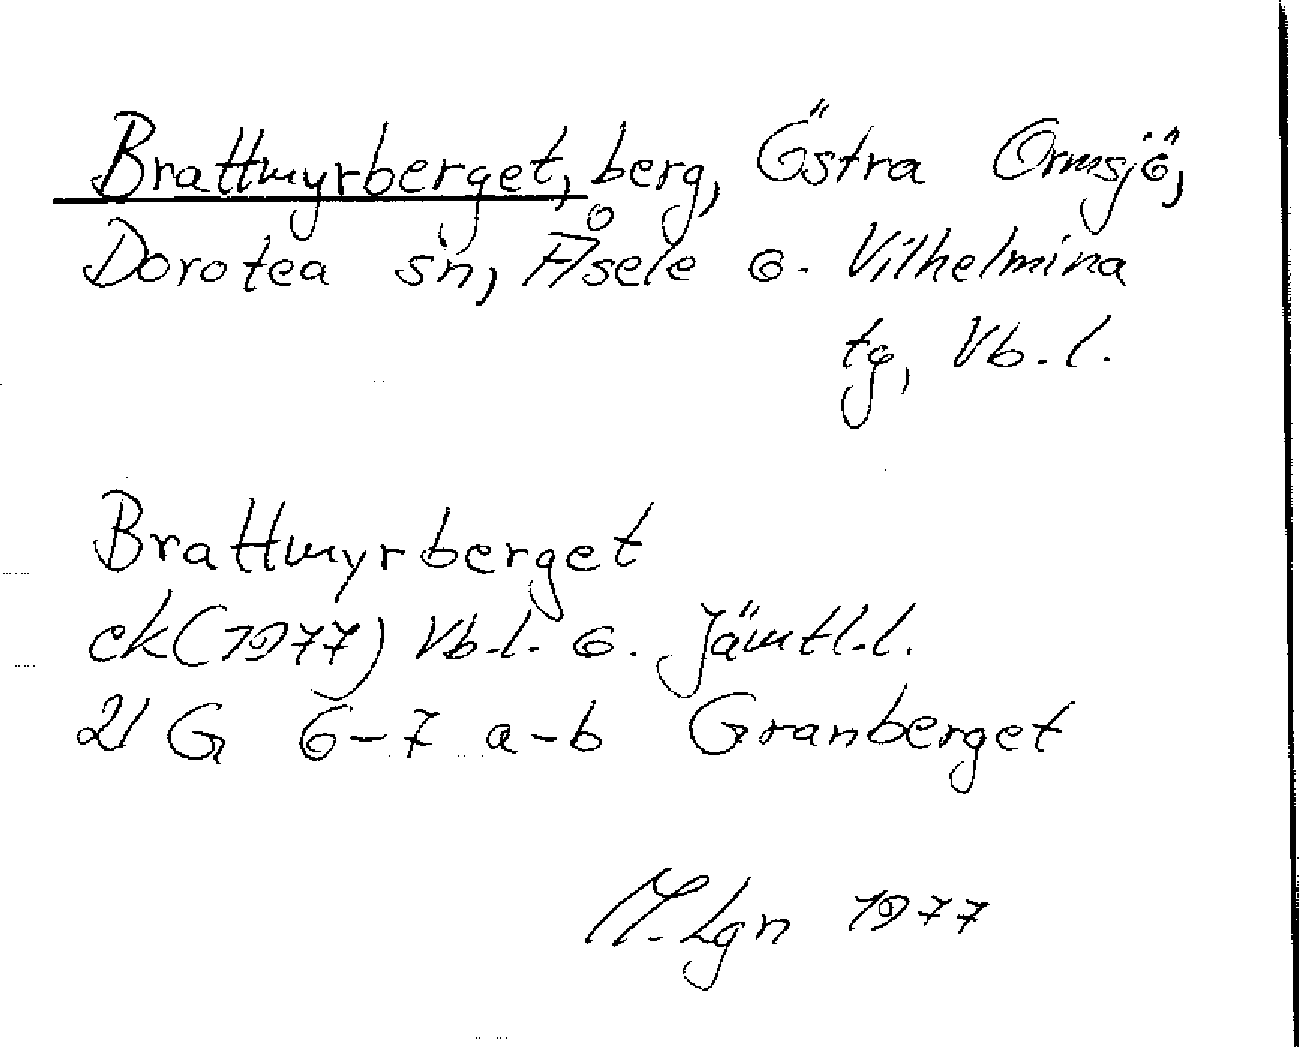 Brattmyrberget, berg, Östra Ormsjö,
Dorotea sn, Åsele o. Vilhelmina
tg, Vb.l.
Brattmyrberget
ek (1977) Vb.l. o. Jämtl.l.
21 G 6-7 a-b Granberget
M. Lgn 1977